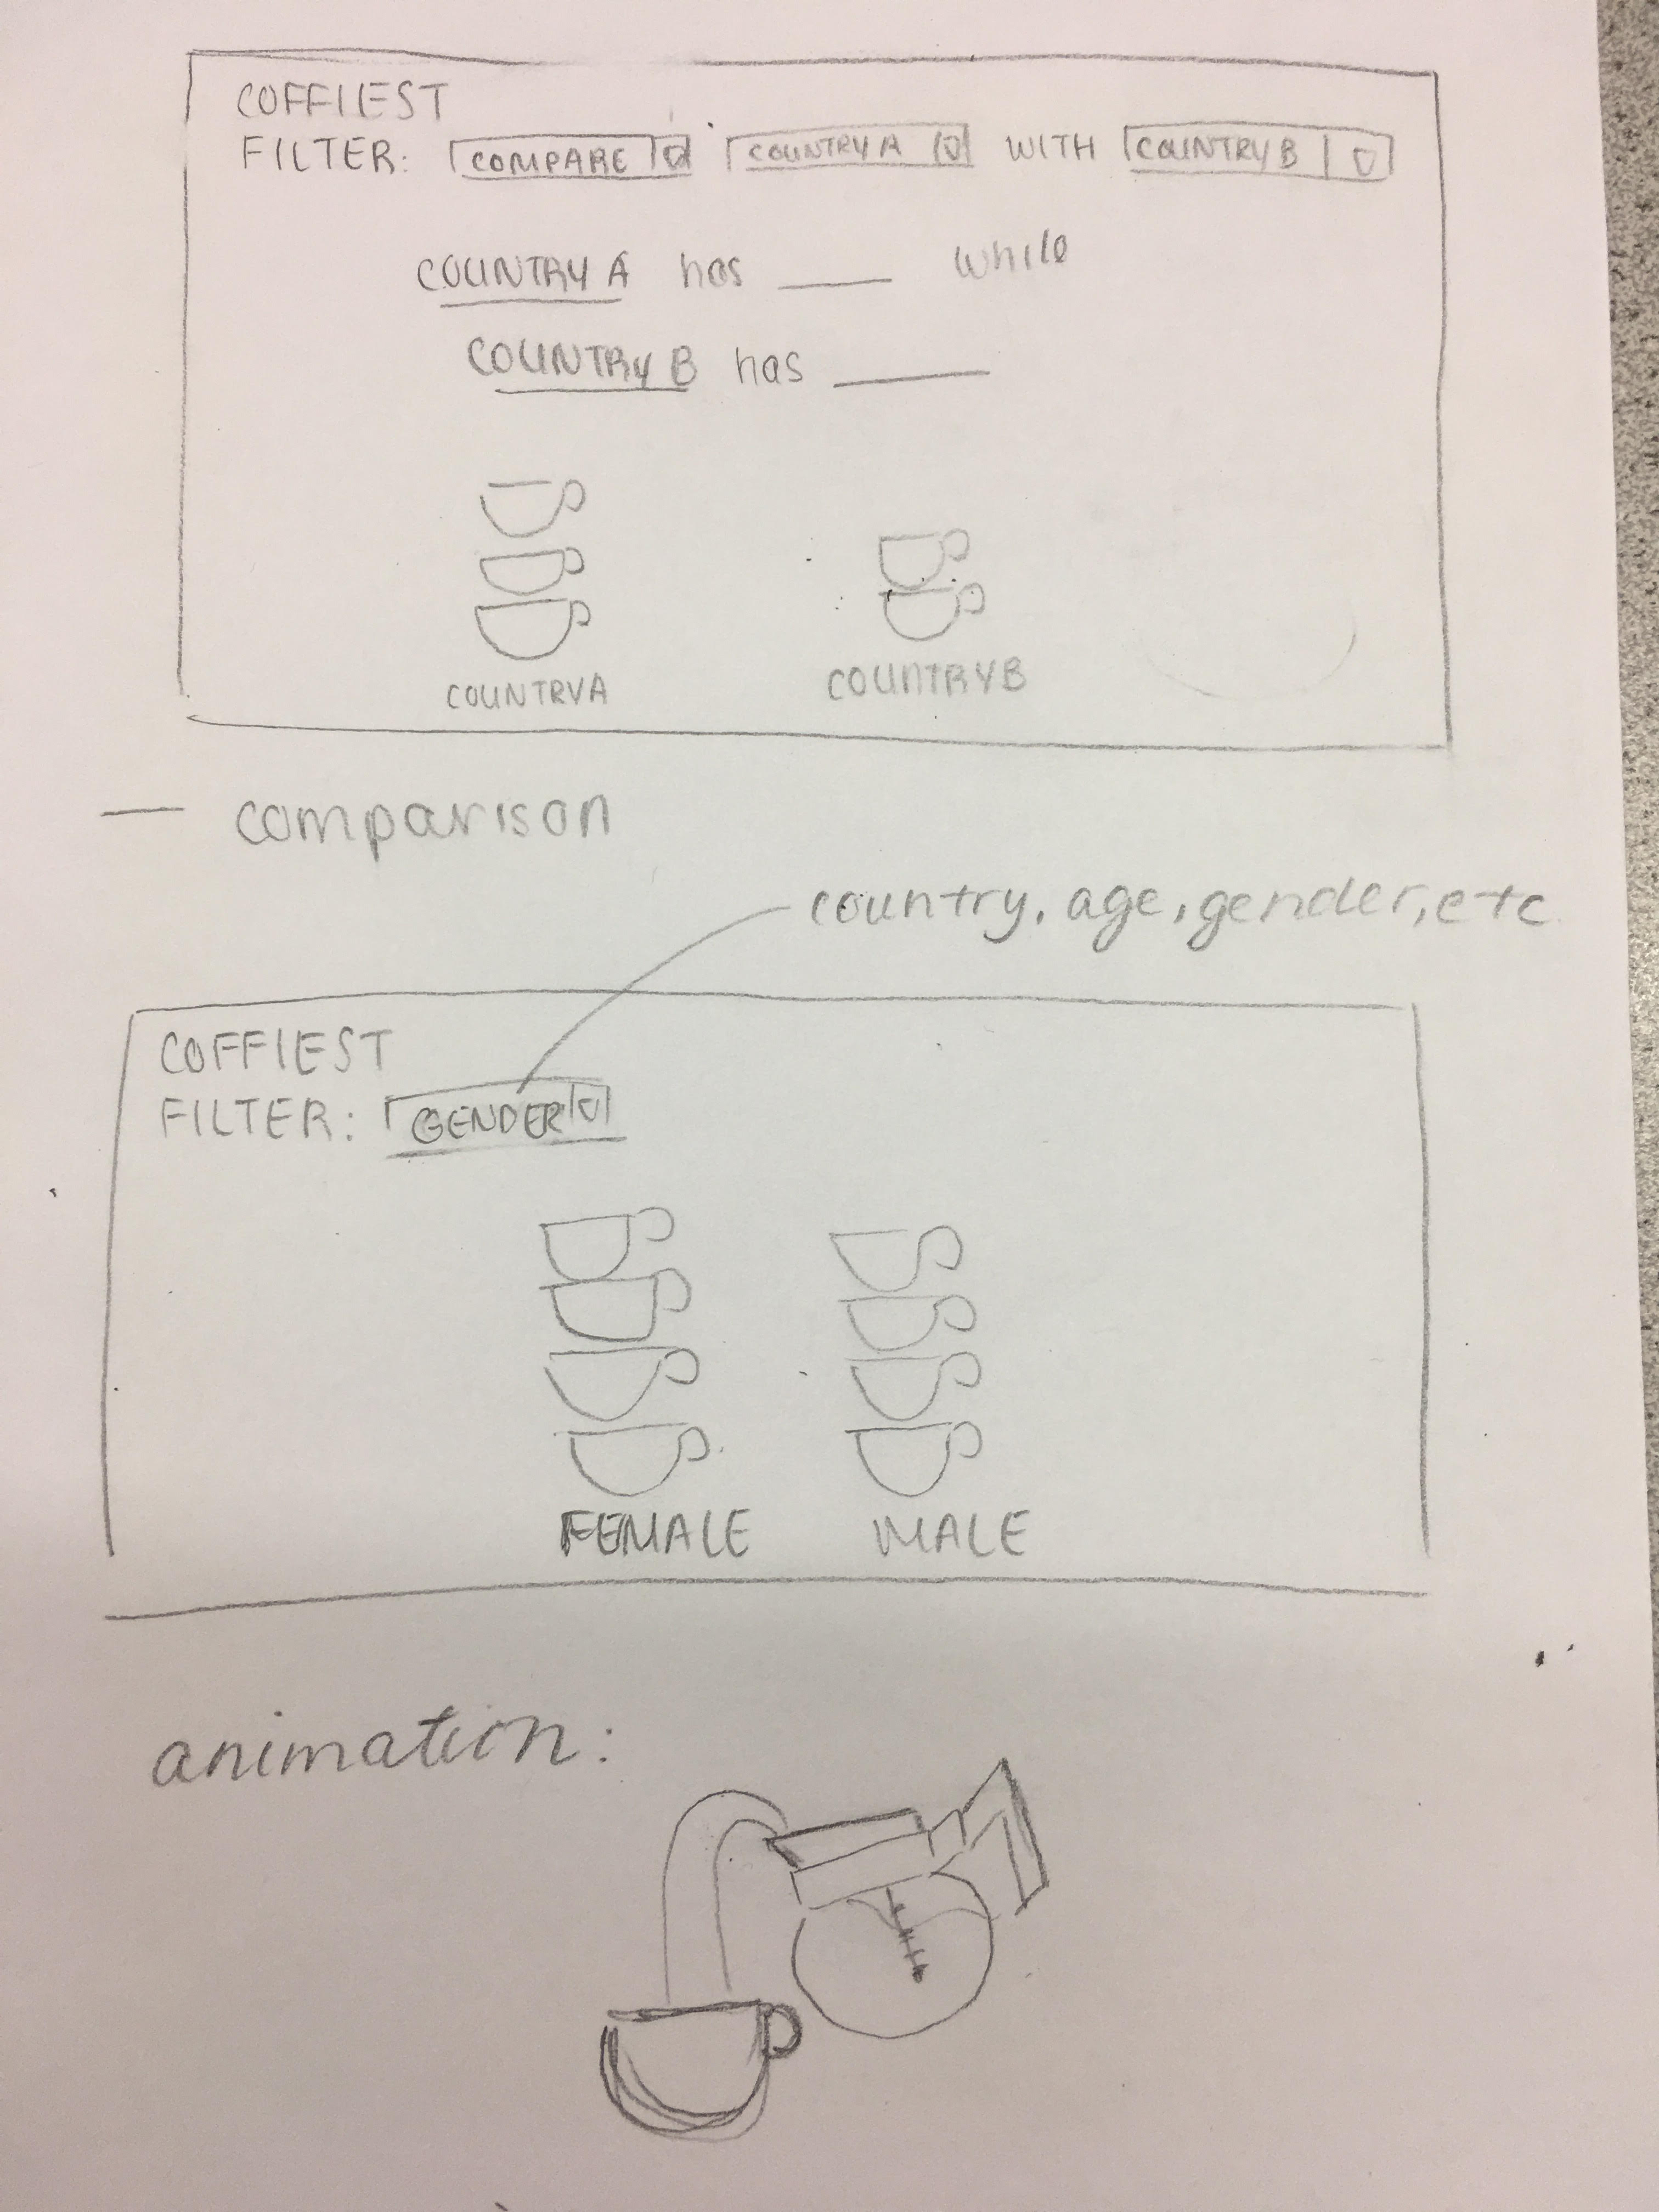 COFFIEST
FILTER: COMPARE COUNTRY A WITH COUNTRY B
COUNTRY A has ___ while
COUNTRY B has ___
COUNTRY A COUNTRY B
— comparison
country, age, gender, etc
COFFIEST
FILTER: GENDER
FEMALE MALE
animation: